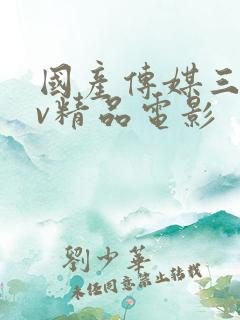 國產傳媒三
v精品電影
劉少華
未经同意禁止转载